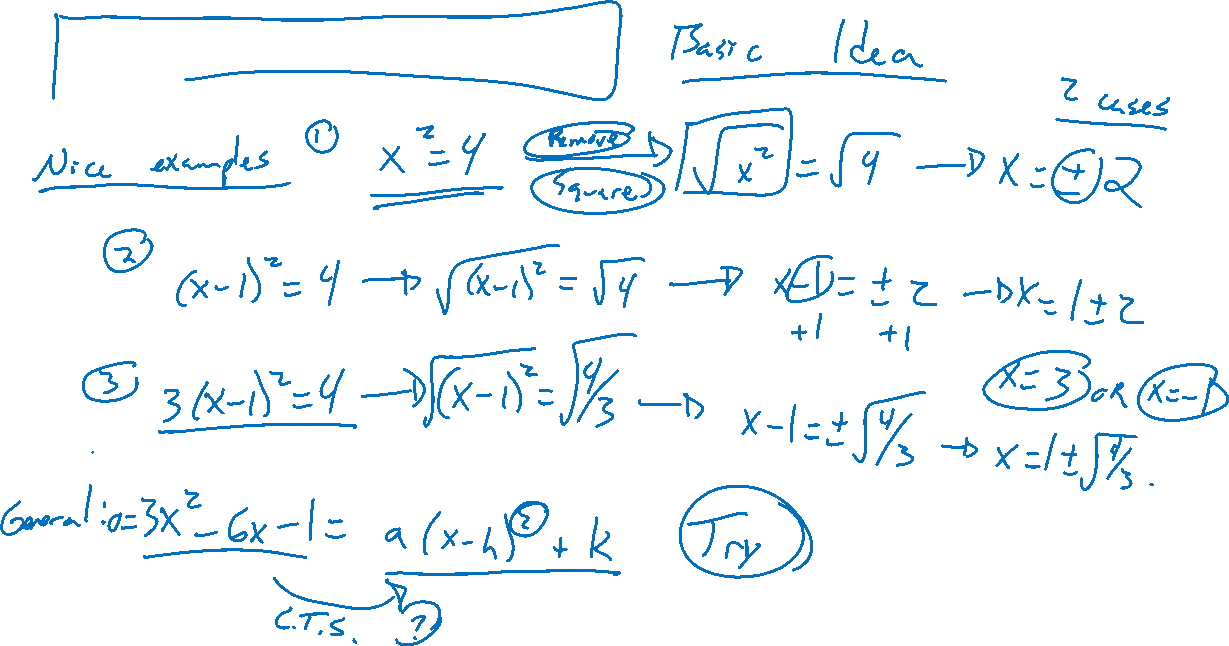 Basic Idea
2 cases
Nice examples ① x² = 4 Remove Square → √x² = √4 → x = ± 2
② (x-1)² = 4 → √(x-1)² = √4 → x-1 = ± 2 → x = 1 ± 2
+1 +1
x = 3 OR x = -1
③ 3(x-1)² = 4 → √(x-1)² = √4/3 → x-1 = ± √4/3 → x = 1 ± √4/3.
General: 0 = 3x² - 6x - 1 = a(x-h)² + k Try
C.T.S. ?